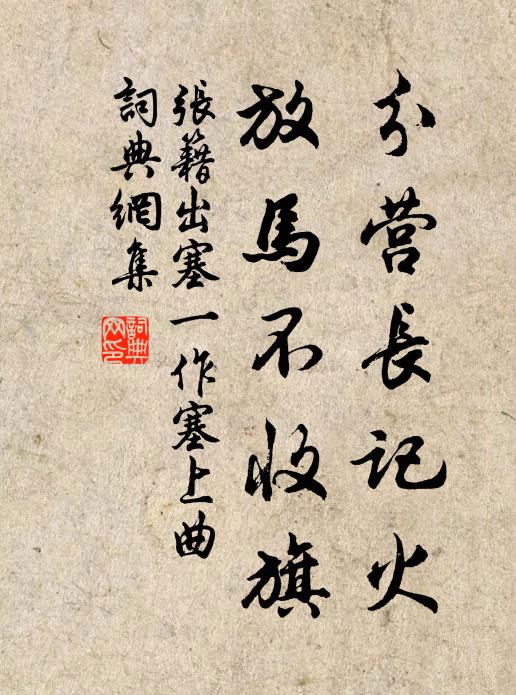 分营長记火
放馬不收旗
張籍出塞一作塞上曲
詞典網集
詞典網印